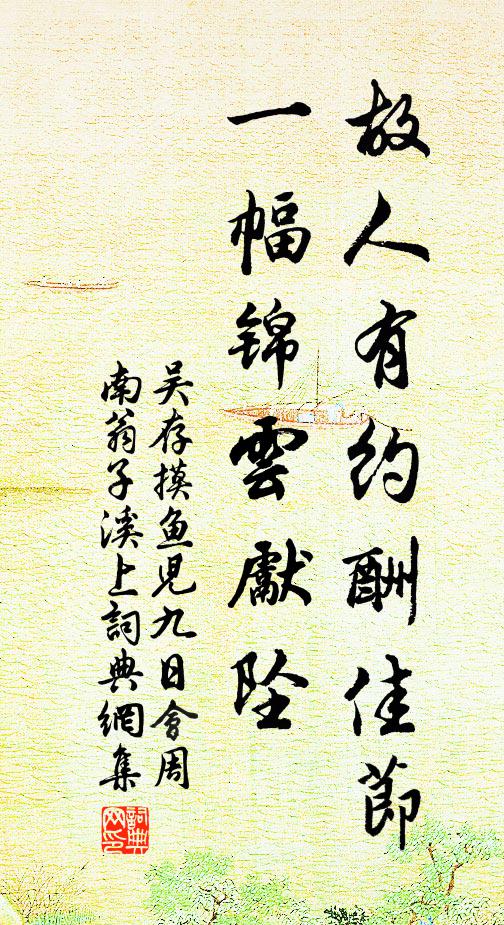 故人有约酬佳節
一幅锦雲獻坠
吴存摸鱼児九日會周
南翁子溪上詞典網集
詞典网印